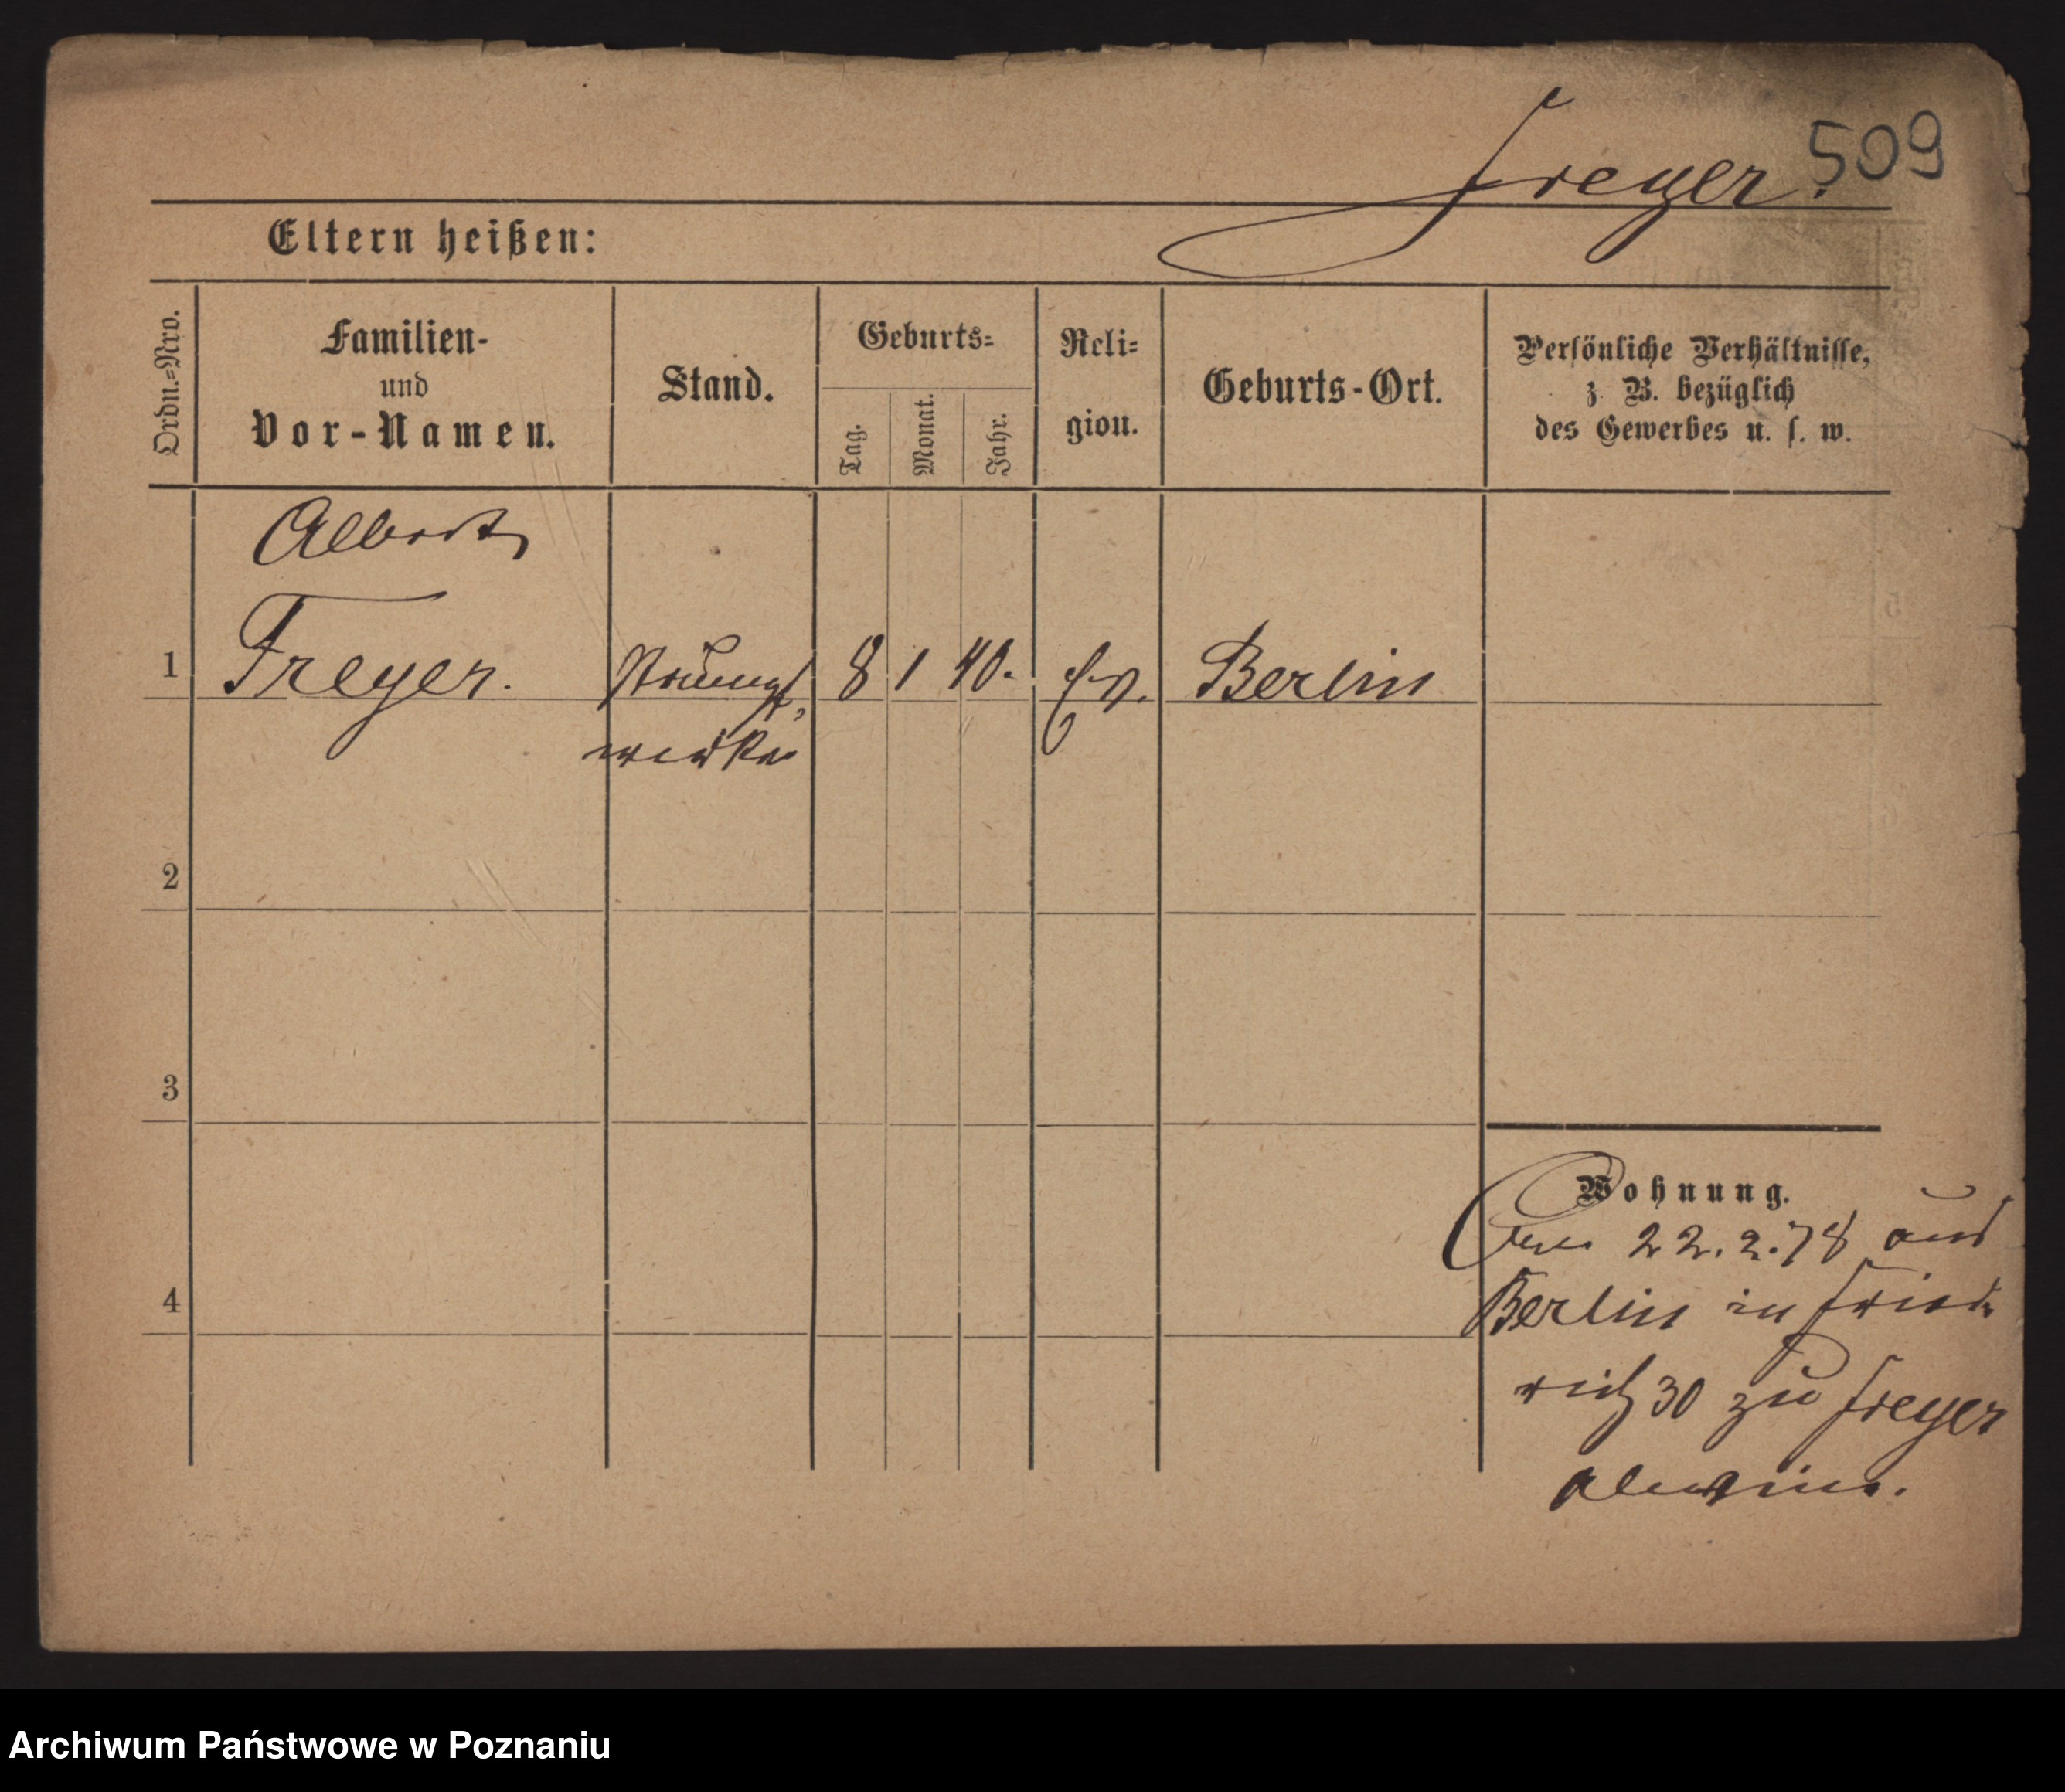 Freyer. 509
Eltern heißen:
Ordn.=Nro.
Familien-
und
Vor-Namen.
Stand.
Geburts=
Tag.
Monat.
Jahr.
Reli=
gion.
Geburts-Ort.
Persönliche Verhältnisse,
z. B. bezüglich
des Gewerbes u. s. w.
Albert
1 Freyer. Strumpf 8 1 40. Ev. Berlin
wirker
2
3
4
Wohnung.
22.2.78 aus
Berlin in Fried-
rich 30 zu Freyer
Archiwum Państwowe w Poznaniu